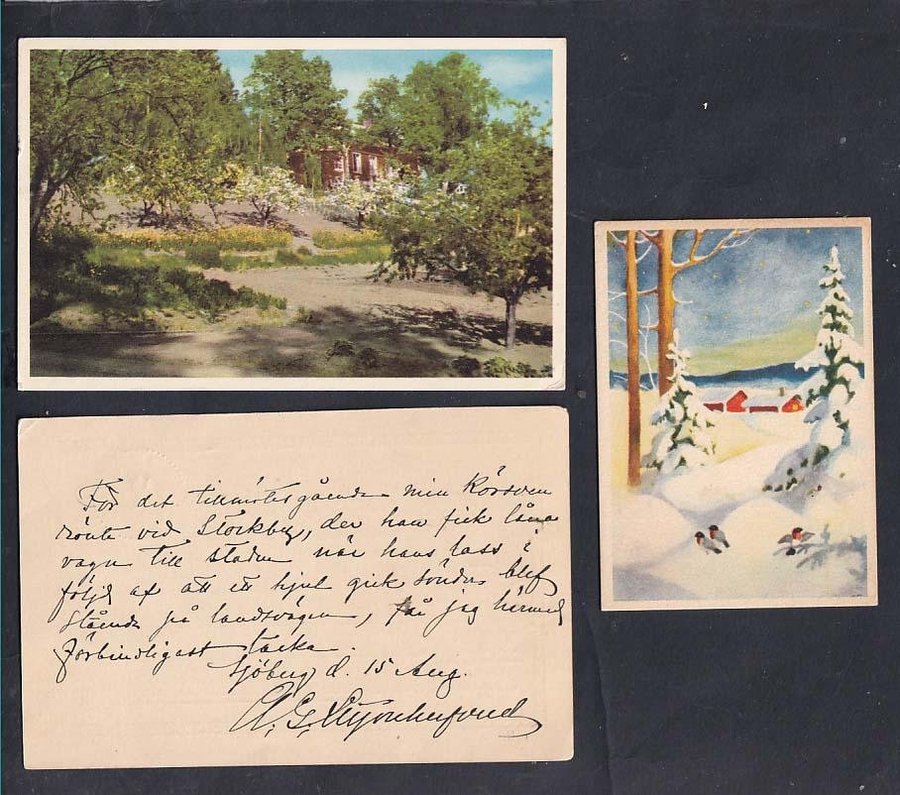 För det tillmötesgående min Körsven
rönte vid Stockby, der han fick låna
vagn till staden när hans lass i
följd af att ett hjul gick sönder blef
stående på landsvägen, får jag härmed
förbindligast tacka.
Sjöberg d. 15 Aug.
A. G.